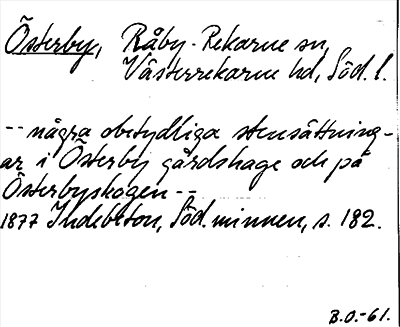 Österby, Råby-Rekarne sn,
Västerrekarne hd, Söd. l.
-- några obetydliga stensättning-
ar i Österby gårdshage och på
Österbyskogen --
1877 Indebetou, Söd. minnen, s. 182.
B.O.-61.